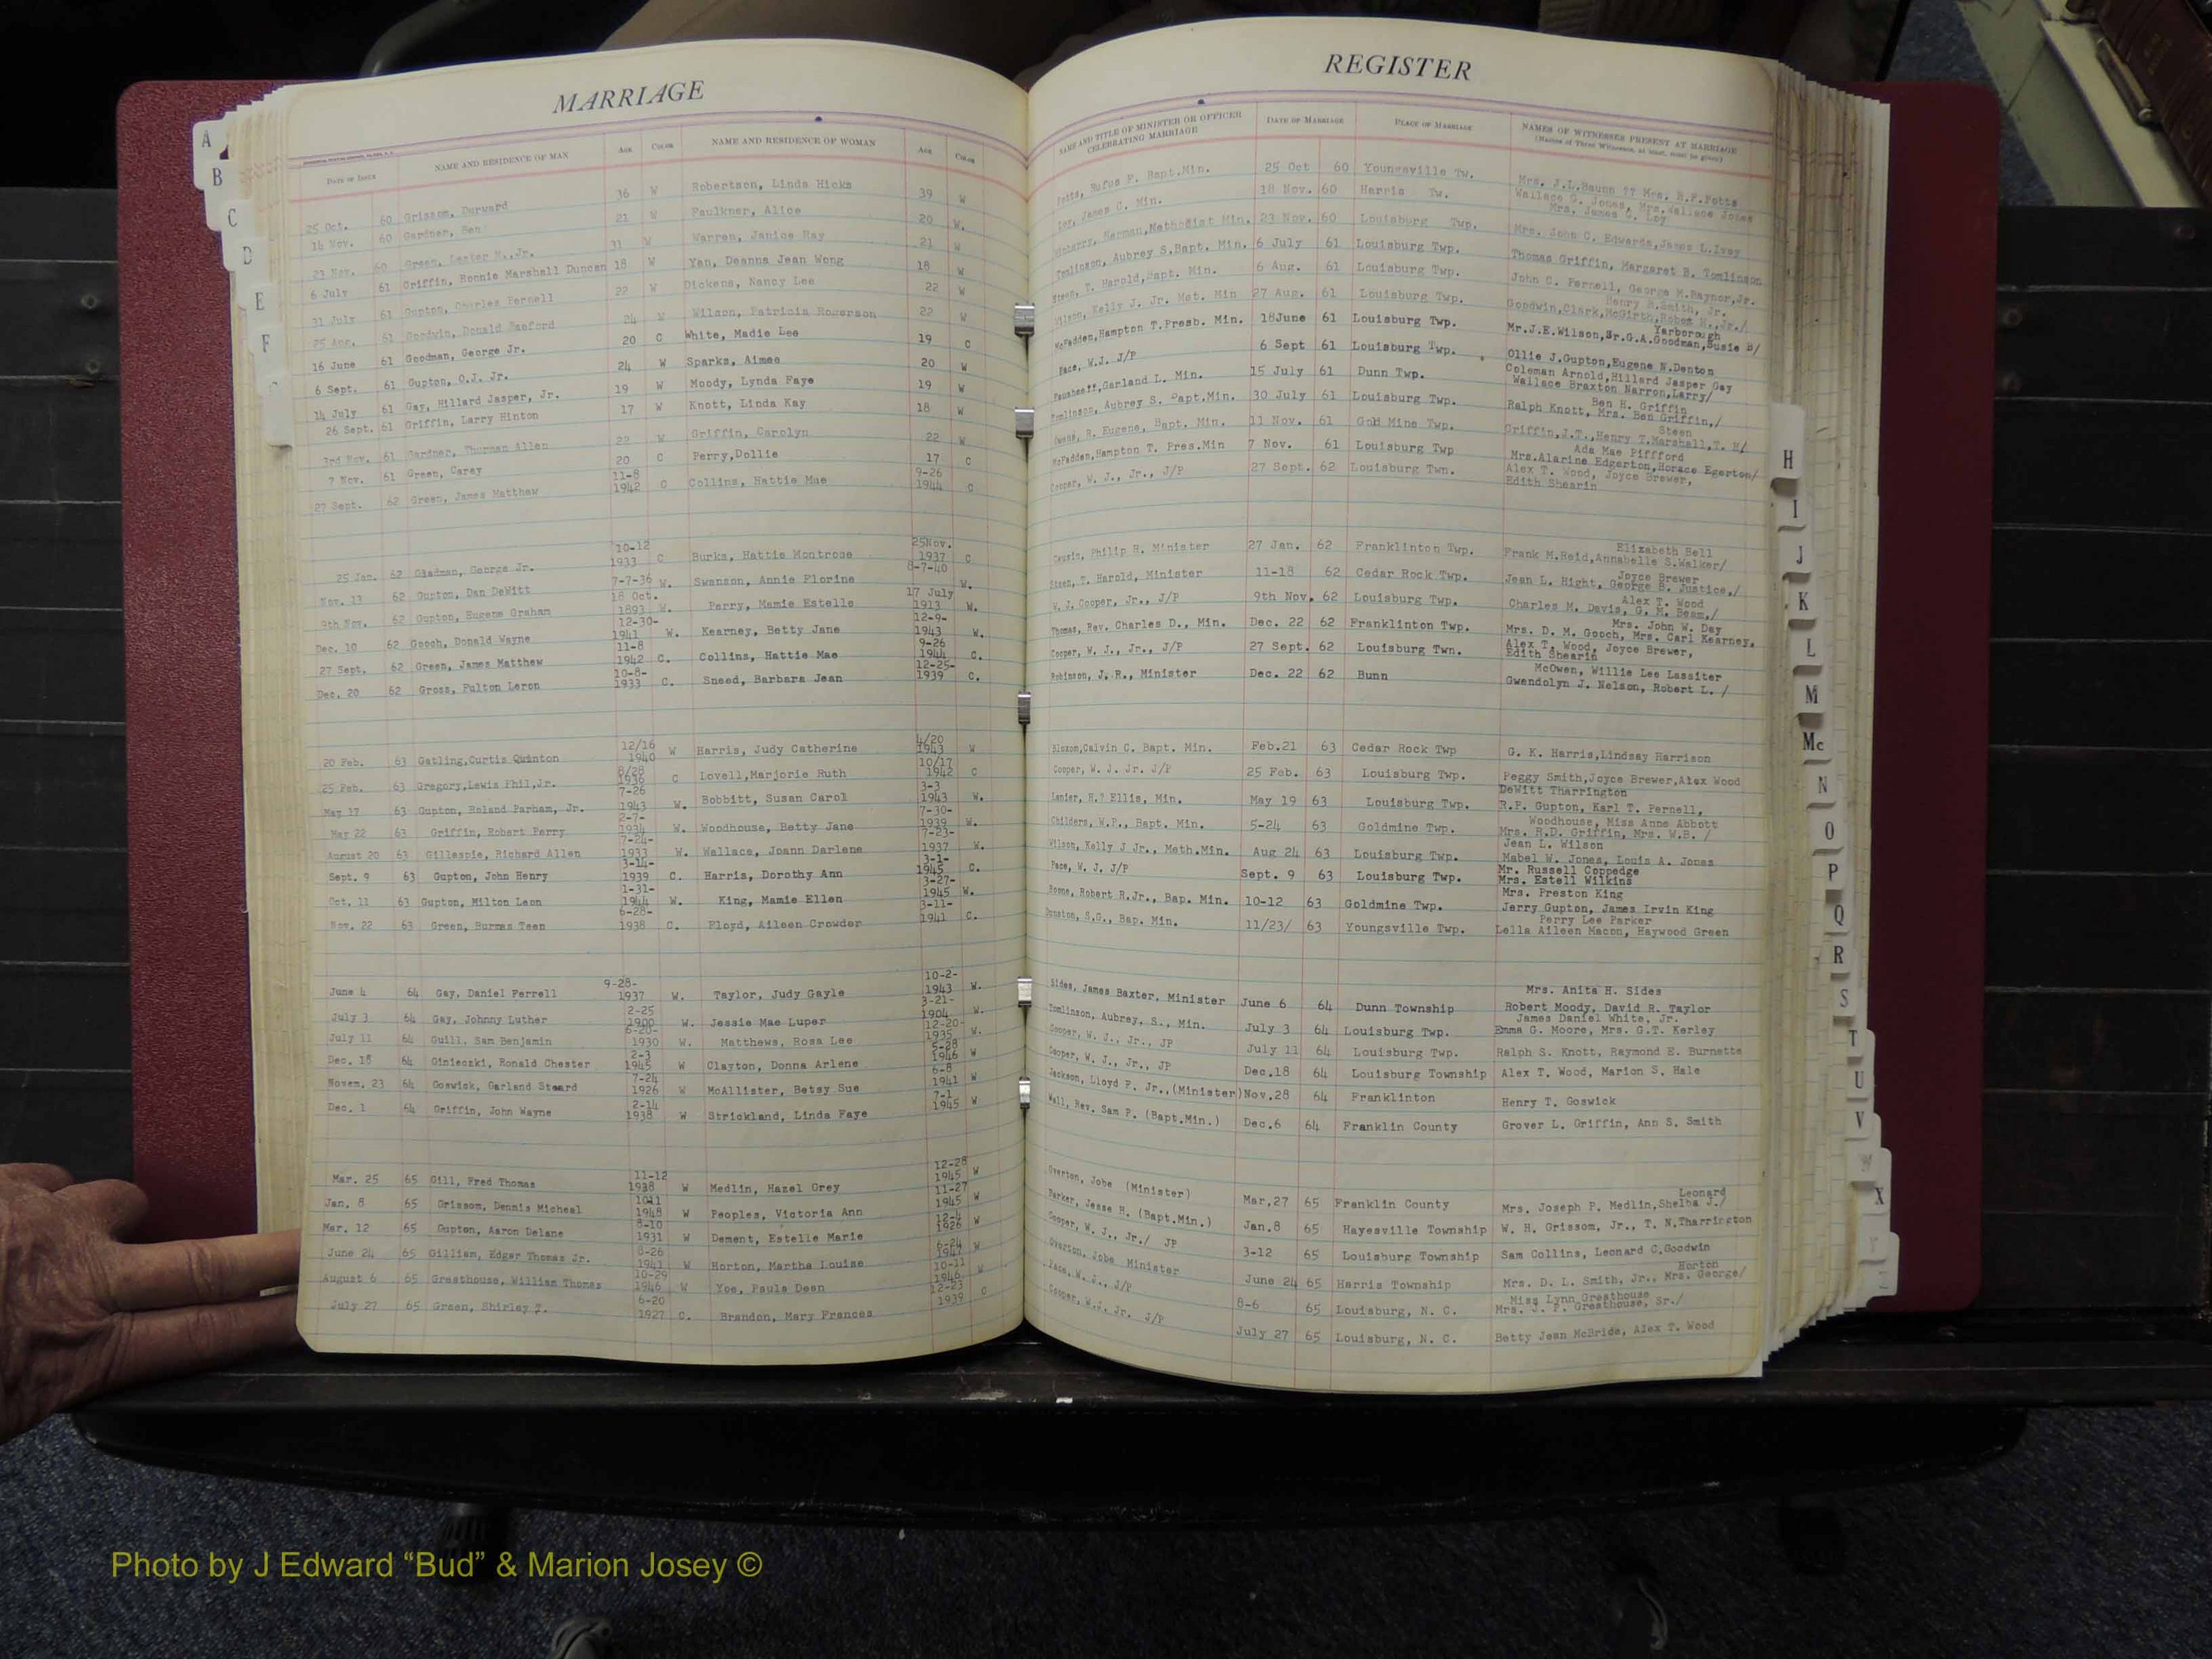 MARRIAGE
DATE OF ISSUE NAME AND RESIDENCE OF MAN AGE COLOR NAME AND RESIDENCE OF WOMAN AGE COLOR
25 Oct. 60 Grissom, Durward 36 W Robertson, Linda Hicks 39 W
14 Nov. 60 Gardner, Ben 21 W Faulkner, Alice 20 W.
23 Nov. 60 Green, Lester M., Jr. 31 W Warren, Janice Ray 21 W
6 July 61 Griffin, Ronnie Marshall Duncan 18 W Yan, Deanna Jean Wong 18 W
31 July 61 Gupton, Charles Pernell 22 W Dickens, Nancy Lee 22 W
25 Aug. 61 Goodwin, Donald Sanford 24 W Wilson, Patricia Rogerson 22 W
16 June 61 Goodman, George Jr. 20 C White, Madie Lee 19 C
6 Sept. 61 Gupton, O.J. Jr. 24 W Sparks, Aimee 20 W
14 July 61 Gay, Hillard Jasper, Jr. 19 W Moody, Lynda Faye 19 W
26 Sept. 61 Griffin, Larry Hinton 17 W Knott, Linda Kay 18 W
3rd Nov. 61 Gardner, Thurman Allen 22 W Griffin, Carolyn 22 W
7 Nov. 61 Green, Carey 20 C Perry,Dollie 17 C
27 Sept. 62 Green, James Matthew 11-8 1942 C Collins, Hattie Mae 9-26 1944 C
25 Jan. 62 Goodman, George Jr. 10-12 1933 C Burks, Hattie Montrose 25Nov. 1937 C
Nov. 13 62 Gupton, Dan DeWitt 7-7-36 W. Swanson, Annie Florine 8-7-40 W.
9th Nov. 62 Gupton, Eugene Graham 18 Oct. 1893 W. Perry, Mamie Estelle 17 July 1913 W.
Dec. 10 62 Gooch, Donald Wayne 12-30- 1941 W. Kearney, Betty Jane 12-9- 1943 W.
27 Sept. 62 Green, James Matthew 11-8 1942 C. Collins, Hattie Mae 9-26 1944 C.
Dec. 20 62 Gross, Fulton Leron 10-8- 1933 C. Sneed, Barbara Jean 12-25- 1939 C.
20 Feb. 63 Gatling,Curtis Quinton 12/16 1940 W Harris, Judy Catherine 4/20 1943 W
25 Feb. 63 Gregory,Lewis Phil,Jr. 8/28 1936 C Lovell,Marjorie Ruth 10/17 1942 C
May 17 63 Gupton, Roland Parham, Jr. 7-26 1943 W. Bobbitt, Susan Carol 3-3- 1943 W.
May 22 63 Griffin, Robert Perry 2-7- 1934 W. Woodhouse, Betty Jane 7-30- 1939 W.
August 20 63 Gillespie, Richard Allen 7-24- 1933 W. Wallace, Joann Darlene 7-23- 1937 W.
Sept. 9 63 Gupton, John Henry 3-14- 1939 C. Harris, Dorothy Ann 3-1- 1945 C.
Oct. 11 63 Gupton, Milton Leon 1-31- 1944 W. King, Mamie Ellen 3-27- 1945 W.
Nov. 22 63 Green, Burmas Teen 6-28- 1938 C. Floyd, Aileen Crowder 3-11- 1941 C.
June 4 64 Gay, Daniel Ferrell 9-28- 1937 W. Taylor, Judy Gayle 10-2- 1943 W.
July 3 64 Gay, Johnny Luther 2-25 1900 W. Jessie Mae Luper 3-21- 1904 W.
July 11 64 Guill, Sam Benjamin 6-20- 1930 W. Matthews, Rosa Lee 12-20- 1935 W.
Dec. 18 64 Ginieczki, Ronald Chester 2-3 1945 W Clayton, Donna Arlene 5-28 1946 W
Novem. 23 64 Goswick, Garland Steard 7-24 1926 W McAllister, Betsy Sue 6-8 1941 W
Dec. 1 64 Griffin, John Wayne 2-14 1938 W Strickland, Linda Faye 7-1 1945 W
Mar. 25 65 Gill, Fred Thomas 11-12 1938 W Medlin, Hazel Grey 12-28 1945 W
Jan. 8 65 Grissom, Dennis Micheal 1011 1948 W Peoples, Victoria Ann 11-27 1945 W
Mar. 12 65 Gupton, Aaron Delane 8-10 1931 W Dement, Estelle Marie 12-4 1926 W
June 24 65 Gilliam, Edgar Thomas Jr. 8-26 1941 W Horton, Martha Louise 6-24 1947 W
August 6 65 Greathouse, William Thomas 10-29 1946 W Yoe, Paula Deen 10-11 1946 W
July 27 65 Green, Shirley T. 6-20 1927 C. Brandon, Mary Frances 12-23 1939 C
REGISTER
NAME AND TITLE OF MINISTER OR OFFICER CELEBRATING MARRIAGE DATE OF MARRIAGE PLACE OF MARRIAGE NAMES OF WITNESSES PRESENT AT MARRIAGE
(Names of Three Witnesses, at least, must be given)
Potts, Rufus P. Bapt.Min. 25 Oct 60 Youngsville Tw. Mrs. J.L.Baunn ?? Mrs. R.F.Potts
Loy, James C. Min. 18 Nov. 60 Harris Tw. Wallace G. Jones, Mrs.Wallace Jones
Mrs. James C. Loy
Kerman,Methodist Min. 23 Nov. 60 Louisburg Twp. Mrs. John C. Edwards,James L.Ivey
Tomlinson, Aubrey S.Bapt. Min. 6 July 61 Louisburg Twp. Thomas Griffin, Margaret B. Tomlinson
Steen, T. Harold,Bapt. Min. 6 Aug. 61 Louisburg Twp. John C. Pernell, George M.Raynor,Jr.
Henry R.Smith, Jr.
Wilson, Kelly J. Jr. Met. Min 27 Aug. 61 Louisburg Twp. Goodwin,Clark,McGirth,Robet H.,Jr./
Yarborough
McFadden,Hampton T.Presb. Min. 18June 61 Louisburg Twp. Mr.J.E.Wilson,Sr.G.A.Goodman,Susie B/
Pace, W.J. J/P 6 Sept 61 Louisburg Twp. Ollie J.Gupton,Eugene N.Denton
Garland L. Min. 15 July 61 Dunn Twp. Coleman Arnold,Hillard Jasper Gay
Wallace Braxton Narron,Larry/
Ben H. Griffin
Tomlinson, Aubrey S. Bapt.Min. 30 July 61 Louisburg Twp. Ralph Knott, Mrs. Ben Griffin,/
Steen
R. Eugene, Bapt. Min. 11 Nov. 61 Gold Mine Twp. Griffin,J.T.,Henry T.Marshall,T. H/
Ada Mae Piffford
McFadden,Hampton T. Pres.Min 7 Nov. 61 Louisburg Twp. Mrs.Alarine Edgerton,Horace Egerton/
Cooper, W. J., Jr., J/P 27 Sept. 62 Louisburg Twn. Alex T. Wood, Joyce Brewer,
Edith Shearin
Elizabeth Bell
Cousin, Philip R. Minister 27 Jan. 62 Franklinton Twp. Frank M.Reid,Annabelle S.Walker/
Joyce Brewer
Steen, T. Harold, Minister 11-18 62 Cedar Rock Twp. Jean L. Hight, George B. Justice,/
Alex T. Wood
W. J. Cooper, Jr., J/P 9th Nov. 62 Louisburg Twp. Charles M. Davis, G. M. Beam,/
Mrs. John W. Day
Thomas, Rev. Charles D., Min. Dec. 22 62 Franklinton Twp. Mrs. D. M. Gooch, Mrs. Carl Kearney,
Cooper, W. J., Jr., J/P 27 Sept. 62 Louisburg Twn. Alex T. Wood, Joyce Brewer,
Edith Shearin
McOwen, Willie Lee Lassiter
Robinson, J. R., Minister Dec. 22 62 Bunn Gwendolyn J. Nelson, Robert L. /
Calvin C. Bapt. Min. Feb.21 63 Cedar Rock Twp G. K. Harris,Lindsay Harrison
Cooper, W. J. Jr. J/P 25 Feb. 63 Louisburg Twp. Peggy Smith,Joyce Brewer,Alex Wood
DeWitt Tharrington
Lanier, H.? Ellis, Min. May 19 63 Louisburg Twp. R.P. Gupton, Karl T. Pernell,
Woodhouse, Miss Anne Abbott
Childers, W.P., Bapt. Min. 5-24 63 Goldmine Twp. Mrs. R.D. Griffin, Mrs. W.B. /
Jean L. Wilson
Wilson, Kelly J Jr., Meth.Min. Aug 24 63 Louisburg Twp. Mabel W. Jones, Louis A. Jones
Pace, W. J. J/P Sept. 9 63 Louisburg Twp. Mr. Russell Coppedge
Mrs. Estell Wilkins
Mrs. Preston King
Boone, Robert R.Jr., Bap. Min. 10-12 63 Goldmine Twp. Jerry Gupton, James Irvin King
Perry Lee Parker
Dunston, S.G., Bap. Min. 11/23/ 63 Youngsville Twp. Lella Aileen Macon, Haywood Green
Mrs. Anita H. Sides
Sides, James Baxter, Minister June 6 64 Dunn Township Robert Moody, David R. Taylor
James Daniel White, Jr.
Tomlinson, Aubrey, S., Min. July 3 64 Louisburg Twp. Emma G. Moore, Mrs. G.T. Kerley
Cooper, W. J., Jr., JP July 11 64 Louisburg Twp. Ralph S. Knott, Raymond E. Burnette
Cooper, W. J., Jr., JP Dec.18 64 Louisburg Township Alex T. Wood, Marion S. Hale
Jackson, Lloyd P. Jr.,(Minister) Nov.28 64 Franklinton Henry T. Goswick
Wall, Rev. Sam P. (Bapt.Min.) Dec.6 64 Franklin County Grover L. Griffin, Ann S. Smith
Leonard
Overton, Jobe (Minister) Mar,27 65 Franklin County Mrs. Joseph P. Medlin,Shelba J./
Parker, Jesse H. (Bapt.Min.) Jan.8 65 Hayesville Township W. H. Grissom, Jr., T. N.Tharrington
Cooper, W. J., Jr./ JP 3-12 65 Louisburg Township Sam Collins, Leonard C.Goodwin
Horton
Overton, Jobe Minister June 24 65 Harris Township Mrs. D. L. Smith, Jr., Mrs. George/
Miss Lynn Greathouse
Pace, W. J., J/P 8-6 65 Louisburg, N. C. Mrs. J. P. Greathouse, Sr./
Cooper, W.J. Jr. J/P July 27 65 Louisburg, N. C. Betty Jean McBride, Alex T. Wood
A
B
C
D
E
F
H
I
J
K
L
M
Mc
N
O
P
Q
R
S
T
U
V
X
Photo by J Edward “Bud” & Marion Josey ©